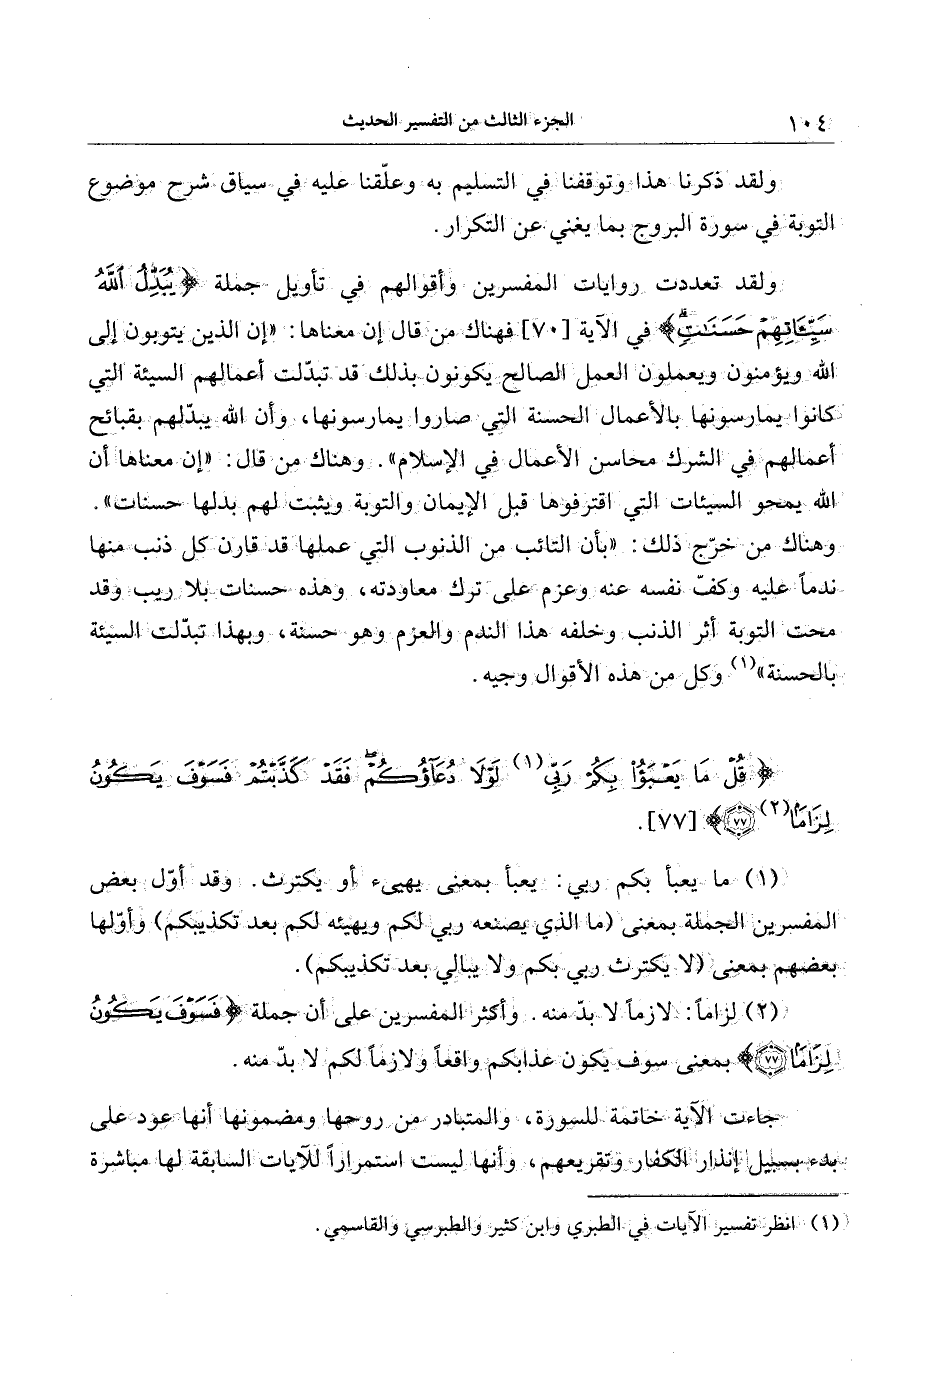 ١٠٤ الجزء الثالث من التفسير الحديث
ولقد ذكرنا هذا وتوقفنا في التسليم به وعلّقنا عليه في سياق شرح موضوع
التوبة في سورة البروج بما يغني عن التكرار.
ولقد تعددت روايات المفسرين وأقوالهم في تأويل جملة ﴿يُبَدِّلُ ٱللَّهُ
سَيِّـَٔاتِهِمْ حَسَنَـٰتٍۗ﴾ في الآية [٧٠] فهناك من قال إن معناها: «إن الذين يتوبون إلى
الله ويؤمنون ويعملون العمل الصالح يكونون بذلك قد تبدّلت أعمالهم السيئة التي
كانوا يمارسونها بالأعمال الحسنة التي صاروا يمارسونها، وأن الله يبدّلهم بقبائح
أعمالهم في الشرك محاسن الأعمال في الإسلام». وهناك من قال: «إن معناها أن
الله يمحو السيئات التي اقترفوها قبل الإيمان والتوبة ويثبت لهم بدلها حسنات».
وهناك من خرّج ذلك: «بأن التائب من الذنوب التي عملها قد قارن كل ذنب منها
ندماً عليه وكفّ نفسه عنه وعزم على ترك معاودته، وهذه حسنات بلا ريب وقد
محت التوبة أثر الذنب وخلفه هذا الندم والعزم وهو حسنة، وبهذا تبدّلت السيئة
بالحسنة»(١) وكل من هذه الأقوال وجيه.
﴿قُلْ مَا يَعْبَؤُا۟ بِكُمْ رَبِّى(١) لَوْلَا دُعَآؤُكُمْۖ فَقَدْ كَذَّبْتُمْ فَسَوْفَ يَكُونُ
لِزَامًۢا(٢) ٧٧﴾ [٧٧].
(١) ما يعبأ بكم ربي: يعبأ بمعنى يهيىء أو يكترث. وقد أوّل بعض
المفسرين الجملة بمعنى (ما الذي يصنعه ربي لكم ويهيئه لكم بعد تكذيبكم) وأوّلها
بعضهم بمعنى (لا يكترث ربي بكم ولا يبالي بعد تكذيبكم).
(٢) لزاماً: لازماً لا بدّ منه. وأكثر المفسرين على أن جملة ﴿فَسَوْفَ يَكُونُ
لِزَامًۢا ٧٧﴾ بمعنى سوف يكون عذابكم واقعاً ولازماً لكم لا بدّ منه.
جاءت الآية خاتمة للسورة، والمتبادر من روحها ومضمونها أنها عود على
بدء بسبيل إنذار الكفار وتقريعهم، وأنها ليست استمراراً للآيات السابقة لها مباشرة
(١) انظر تفسير الآيات في الطبري وابن كثير والطبرسي والقاسمي.